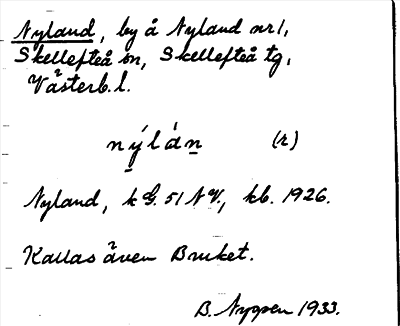 Nyland, by å Nyland nr 1,
Skellefteå sn, Skellefteå tg,
Västerb. l.
nýlán (r)
Nyland, kG. 51 NV., kb. 1926.
Kallas även Bruket.
B. Nygren 1933.